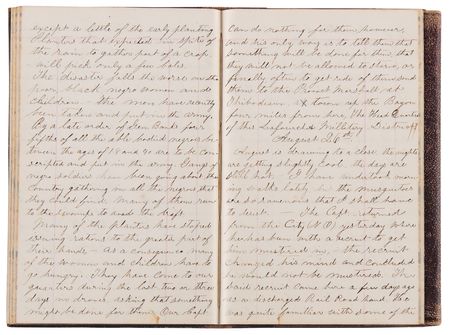 except a little of the early planting.
Planters that expected in spite of
the rain to gather part of a crop
will pick only a few bales.
The disaster falls the worse on the
poor black negro women and
children – the men have recently
been taken and put in the army.
By a late order of Gen Banks four
fifths of all the able bodied negroes be-
tween the ages of 18 and 40 are to be con-
scripted and put in the army. Gangs of
negro soldiers have been going about the
country gathering in all the negroes that
they could find. Many of them run
to the swamps to avoid the draft.
Many of the planters have stoped
issuing rations to the greater part of
their hands – as a consequence many
of the women and children have to
go hungry. They have come to our
quarters during the last two or three
days in droves, asking that something
might be done for them. Our Capt
can do nothing for them however,
and his only way is to tell them that
something will be done for them, that
they will not be allowed to starve, or
finally often to get rid of them send
them to the Provost Marshall at
Thibodeaux a town up the Bayou
four miles from here, The Head Quarters
of the Lafourche Military District
August 26th
August is drawing to a close the nights
are getting slightly cool the days are
still hot. I have undertook
walks lately but the musquitoes
are so that I shall have
to desist. – The Capt. returned
from the City (N.O) yesterday where
he has been with a recruit to get
him mustered in, the recruit
changed his mind and concluded
he would not be mustered. The
said recruit came here a few days ago
as a discharged Rail Road hand. He
was quite familiar with some of the